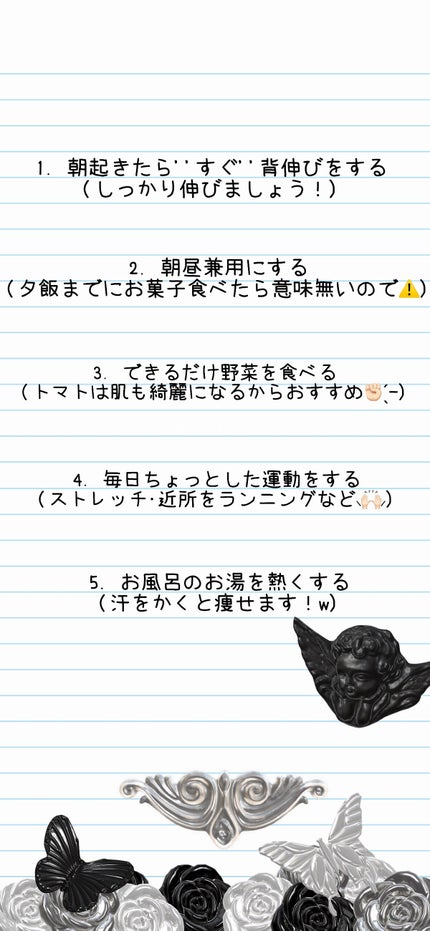 1. 朝起きたら''すぐ''背伸びをする
(しっかり伸びましょう！)
2. 朝昼兼用にする
(夕飯までにお菓子食べたら意味無いので⚠️)
3. できるだけ野菜を食べる
(トマトは肌も綺麗になるからおすすめ✊🏻 ̖́-)
4. 毎日ちょっとした運動をする
(ストレッチ·近所をランニングなど🙌🏻)
5. お風呂のお湯を熱くする
(汗をかくと痩せます！w)